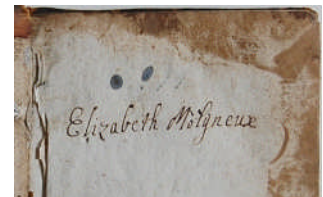 Elizabeth Molyneux